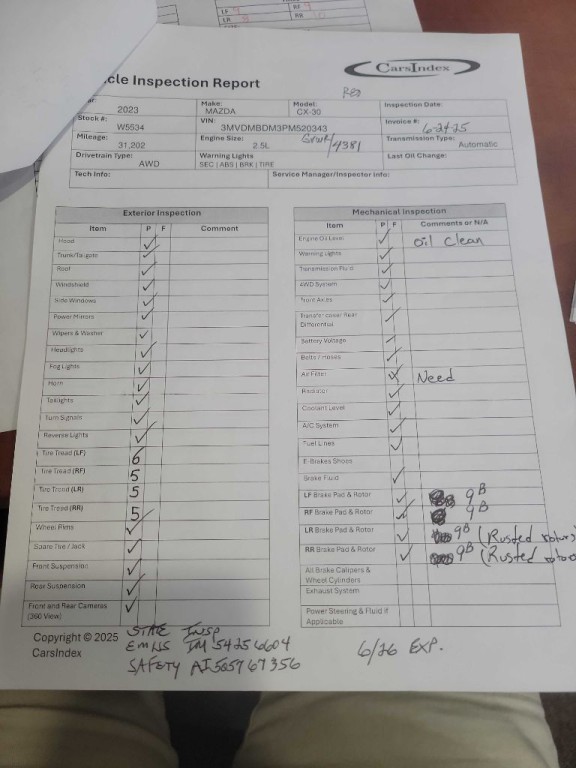 LF
RF
LR
RR
CarsIndex
cle Inspection Report
Red
2023
Make:
MAZDA
Model:
CX-30
Inspection Date:
Stock #:
W5534
VIN:
3MVDMBDM3PM520343
Invoice #:
6-24-25
Mileage:
31,202
Engine Size:
2.5L
4381
Transmission Type:
Automatic
Drivetrain Type:
AWD
Warning Lights
SEC | ABS | BRK | TIRE
Last Oil Change:
Tech Info:
Service Manager/Inspector Info:
Exterior Inspection
Item P F Comment
Hood
Trunk/Tailgate
Roof
Windshield
Side Windows
Power Mirrors
Wipers & Washer
Headlights
Fog Lights
Horn
Taillights
Turn Signals
Reverse Lights
Tire Tread (LF) 6
Tire Tread (RF) 5
Tire Tread (LR) 5
Tire Tread (RR) 5
Wheel Rims
Spare Tire / Jack
Front Suspension
Rear Suspension
Front and Rear Cameras
(360 View)
Mechanical Inspection
Item P F Comments or N/A
Engine Oil Level Oil Clean
Warning Lights
Transmission Fluid
AWD System
Front Axles
Transfer Case/ Rear
Differential
Battery Voltage
Belts / Hoses
Air Filter Need
Radiator
Coolant Level
A/C System
Fuel Lines
E-Brakes Shoes
Brake Fluid
LF Brake Pad & Rotor 9B
RF Brake Pad & Rotor 9B
LR Brake Pad & Rotor 9B (Rusted rotors)
RR Brake Pad & Rotor 9B (Rusted rotors
All Brake Calipers &
Wheel Cylinders
Exhaust System
Power Steering & Fluid if
Applicable
Copyright © 2025
CarsIndex
STATE INSP
EMISS IM 54256604
SAFETY AI 565767356
6/26 EXP.